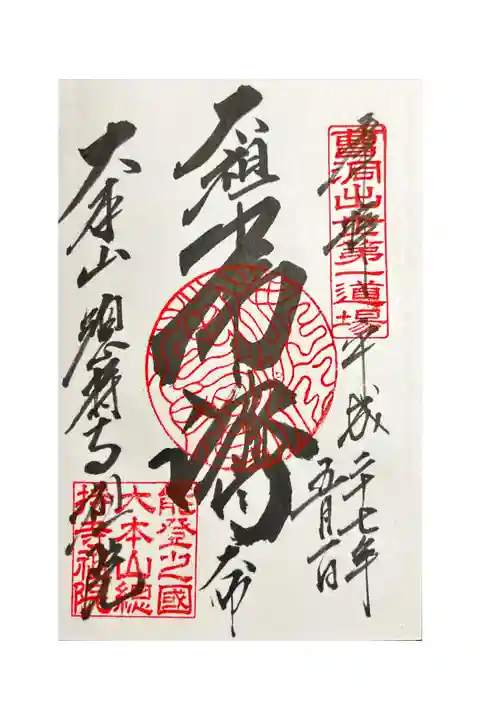 曹洞出世第一道場
奉拝 平成二十七年
五月
太祖
常済
大師
大本山總持寺祖院
能登之國
大本山總
持寺祖院